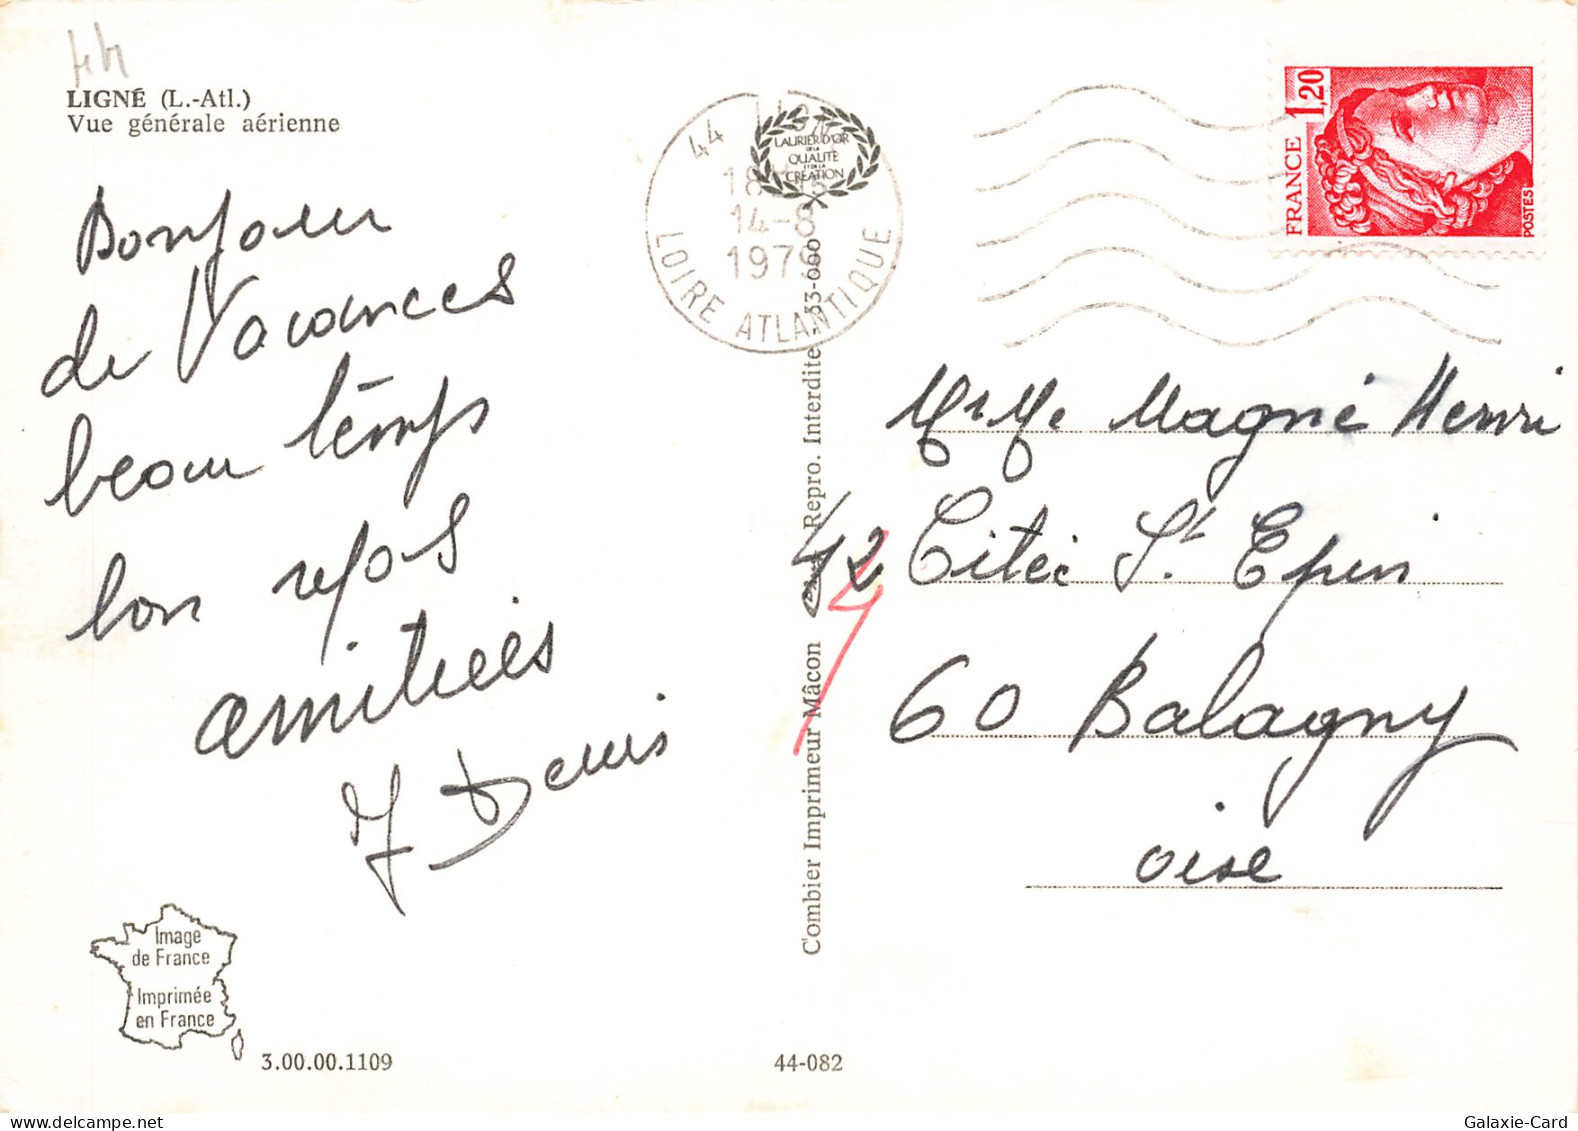 44
LIGNÉ (L.-Atl.)
Vue générale aérienne
Bonjour
de Vacances
beau temps
bon repos
amitiées
J Denis
Image
de France
Imprimée
en France
3.00.00.1109
44
18H15
14-8
1979
LOIRE ATLANTIQUE
LAURIER D'OR
DE LA
QUALITÉ
ET DE LA
CRÉATION
Combier Imprimeur Mâcon
Repro. Interdite - 33-000
44-082
FRANCE 1,20
POSTES
Mr Me Magné Henri
42 Citéé St Epin
60 Balagny
oise
Galaxie-Card